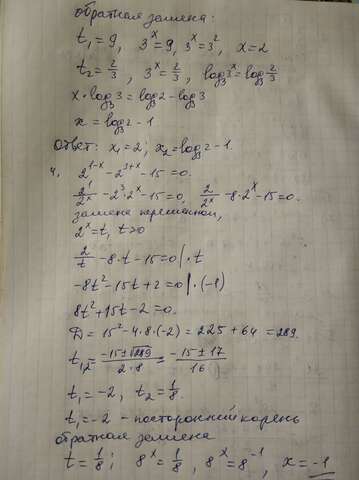 обратная замена:
t₁ = 9, 3ˣ = 9, 3ˣ = 3², x = 2
t₂ = 2/3, 3ˣ = 2/3, log₃3ˣ = log₃ 2/3
x · log₃3 = log₃2 - log₃3
x = log₃2 - 1
Ответ: x₁ = 2; x₂ = log₃2 - 1.
4. 2¹⁻ˣ - 2³⁺ˣ - 15 = 0.
2¹/2ˣ - 2³ · 2ˣ - 15 = 0, 2/2ˣ - 8 · 2ˣ - 15 = 0.
замена переменной,
2ˣ = t, t > 0
2/t - 8 · t - 15 = 0 | · t
-8t² - 15t + 2 = 0 | · (-1)
8t² + 15t - 2 = 0.
D = 15² - 4 · 8 · (-2) = 225 + 64 = 289.
t₁,₂ = (-15 ± √289)/(2 · 8) = (-15 ± 17)/16
t₁ = -2, t₂ = 1/8.
t₁ = -2 - посторонний корень
обратная замена
t = 1/8; 8ˣ = 1/8, 8ˣ = 8⁻¹, x = -1